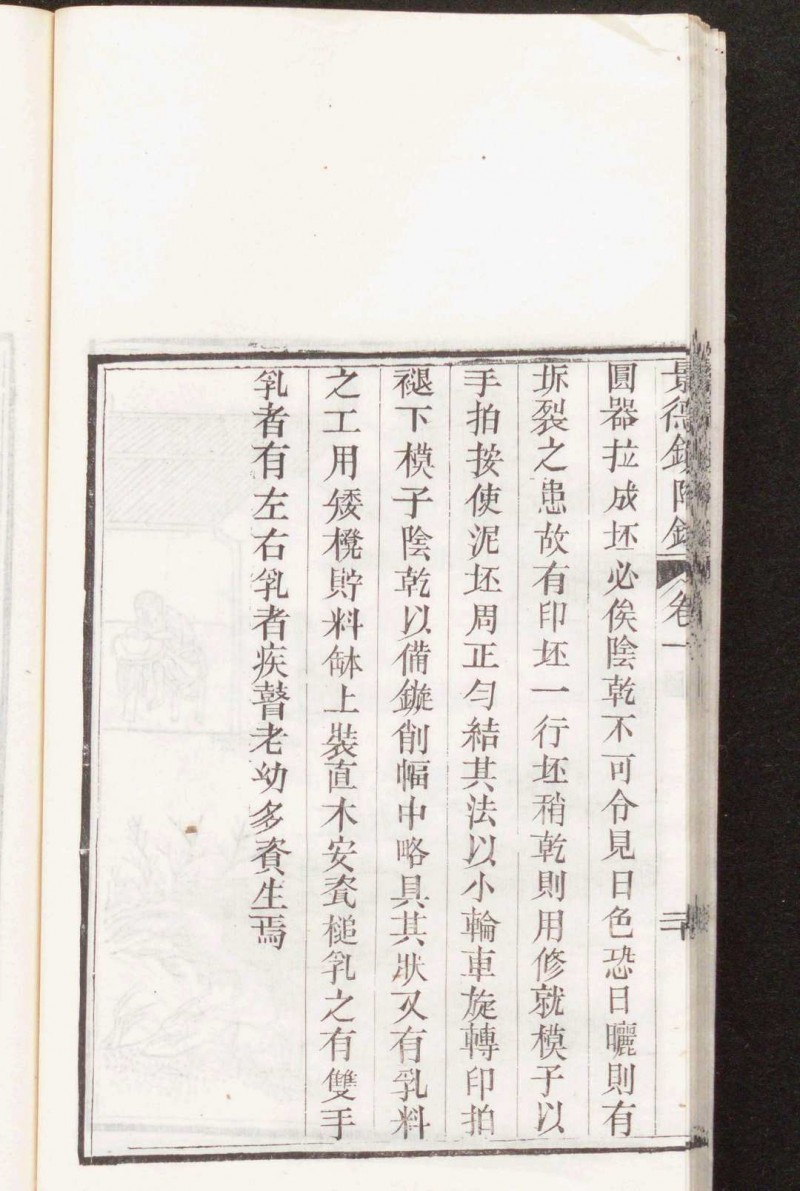 景德鎮陶錄 卷一
圓器拉成坯必俟陰乾不可令見日色恐日曬則有
坼裂之患故有印坯一行坯稍乾則用修就模子以
手拍按使泥坯周正勻結其法以小輪車旋轉印拍
褪下模子陰乾以備鏇削幅中略具其狀又有乳料
之工用矮櫈貯料缽上裝直木安瓷槌乳之有雙手
乳者有左右乳者疾瞽老幼多資生焉